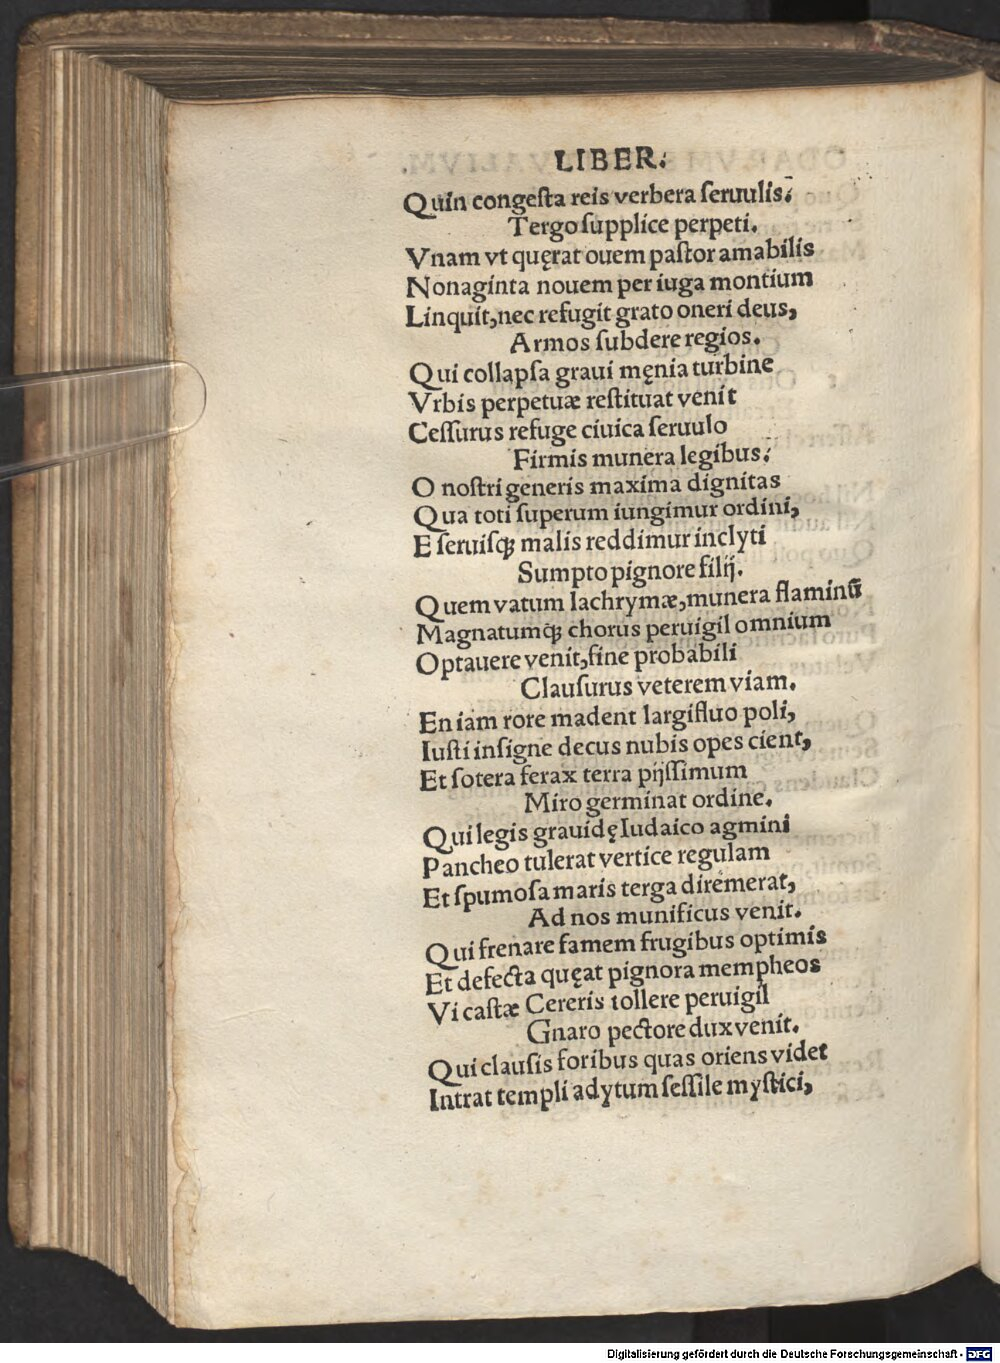 LIBER.
Quin congeſta reis verbera ſeruulis.
Tergo ſupplice perpeti.
Vnam vt quęrat ouem paſtor amabilis
Nonaginta nouem per iuga montium
Linquit, nec refugit grato oneri deus,
Armos ſubdere regios.
Qui collapſa graui męnia turbine
Vrbis perpetuæ reſtituat venit
Ceſſurus refuge ciuica ſeruulo
Firmis munera legibus.
O noſtri generis maxima dignitas
Qua toti ſuperum iungimur ordini,
E ſeruiſq; malis reddimur inclyti
Sumpto pignore filij.
Quem vatum lachrymæ, munera flaminū
Magnatumq; chorus peruigil omnium
Optauere venit, ſine probabili
Clauſurus veterem viam.
En iam rore madent largifluo poli,
Iuſti inſigne decus nubis opes cient,
Et ſotera ferax terra pijſſimum
Miro germinat ordine.
Qui legis grauidę Iudaico agmini
Pancheo tulerat vertice regulam
Et ſpumoſa maris terga diremerat,
Ad nos munificus venit.
Qui frenare famem frugibus optimis
Et defecta quęat pignora mempheos
Vi caſtæ Cereris tollere peruigil
Gnaro pectore dux venit.
Qui clauſis foribus quas oriens videt
Intrat templi adytum ſeſſile myſtici,
Digitalisierung gefördert durch die Deutsche Forschungsgemeinschaft - DFG